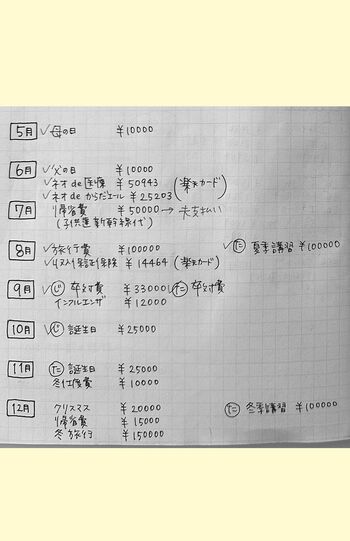 5月 ✓母の日 ¥10000
6月 ✓父の日 ¥10000
✓ネオde医療 ¥50943 (楽天カード)
✓ネオdeからだエール ¥25203
7月 帰省費 ¥50000→夫支払い
(子供達新幹線代)
8月 ✓旅行費 ¥100000 ✓(た) 夏季講習 ¥100000
✓収入保証保険 ¥14464 (楽天カード)
9月 ✓(じ) 卒対費 ¥33000 ✓(た) 卒対費
インフルエンザ ¥12000
10月 ✓(じ) 誕生日 ¥25000
11月 (た) 誕生日 ¥25000
冬仕度費 ¥10000
12月 クリスマス ¥20000 (た) 冬季講習 ¥100000
帰省費 ¥15000
冬旅行 ¥150000